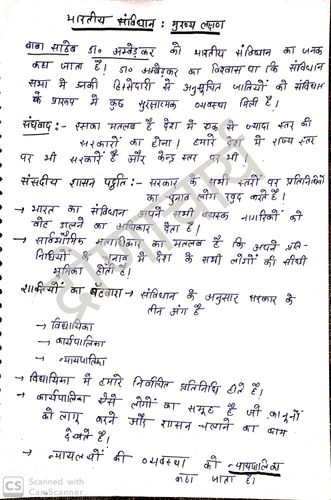 भारतीय संविधान : मुख्य लक्षण
बाबा साहेब डॉ० अम्बेडकर को भारतीय संविधान का जनक
कहा जाता है। डॉ० अम्बेडकर का विश्वास था कि संविधान
सभा में उनकी हिस्सेदारी से अनुसूचित जातियों को संविधान
के प्रारूप में कुछ सुरक्षात्मक व्यवस्था मिली है।
संघवाद :- इसका मतलब है देश में एक से ज्यादा स्तर की
सरकारों का होना। हमारे देश में राज्य स्तर
पर भी सरकारें है और केन्द्र स्तर पर भी।
संसदीय शासन पद्धति :- सरकार के सभी स्तरों पर प्रतिनिधियों
का चुनाव लोग खुद करते है।
→ भारत का संविधान अपने सभी वयस्क नागरिकों को
वोट डालने का अधिकार देता है।
→ सार्वभौमिक मताधिकार का मतलब है कि अपने प्रति-
निधियों के चुनाव में देश के सभी लोगों की सीधी
भूमिका होती है।
शक्तियों का बँटवारा → संविधान के अनुसार सरकार के
तीन अंग है
→ विधायिका
→ कार्यपालिका
→ न्यायपालिका
→ विधायिका में हमारे निर्वाचित प्रतिनिधि होते है।
→ कार्यपालिका ऐसे लोगों का समूह है जो कानूनों
को लागू करने और शासन चलाने का काम
देखते है।
→ न्यायालयों की व्यवस्था को न्यायपालिका
कहा जाता है।
द्रोणाचार्य
CS Scanned with
CamScanner